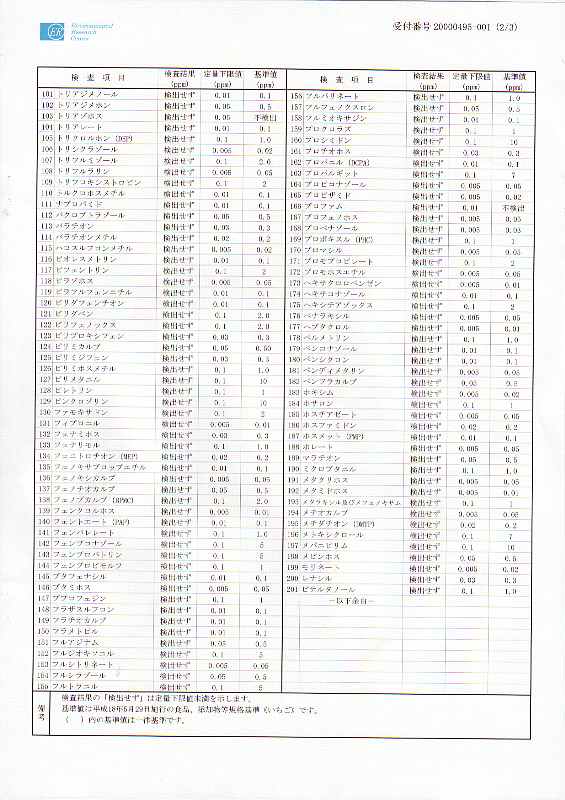 ER
Environmental
Research
Center
受付番号 20000495-001 (2/3)
検 査 項 目 検査結果 (ppm) 定量下限値 (ppm) 基準値 (ppm)
101 トリアジメノール 検出せず 0.01 0.1
102 トリアジメホン 検出せず 0.05 0.5
103 トリアゾホス 検出せず 0.05 不検出
104 トリアレート 検出せず 0.01 0.1
105 トリクロルホン (DEP) 検出せず 0.1
106 トリシクラゾール 検出せず 0.005 0.02
107 トリフルミゾール 検出せず 0.1 2.0
108 トリフルラリン 検出せず 0.005 0.05
109 トリフロキシストロビン 検出せず 0.1 2
110 トルクロホスメチル 検出せず 0.01 0.1
111 ナプロパミド 検出せず 0.01 0.1
112 パクロブトラゾール 検出せず 0.05 0.5
113 パラチオン 検出せず 0.03 0.3
114 パラチオンメチル 検出せず 0.02 0.2
115 ハロスルフロンメチル 検出せず 0.005 0.02
116 ビオレスメトリン 検出せず 0.01 0.1
117 ビフェントリン 検出せず 0.1 2
118 ピラゾホス 検出せず 0.005 0.05
119 ピラフルフェンエチル 検出せず 0.01 0.1
120 ピリダフェンチオン 検出せず 0.01 0.1
121 ピリダベン 検出せず 0.1 2.0
122 ピリフェノックス 検出せず 0.1 2.0
123 ピリプロキシフェン 検出せず 0.03 0.3
124 ピリミカルブ 検出せず 0.05 0.50
125 ピリミジフェン 検出せず 0.03 0.3
126 ピリミホスメチル 検出せず 0.1 1.0
127 ピリメタニル 検出せず 0.1 10
128 ピレトリン 検出せず 0.1 1
129 ビンクロゾリン 検出せず 0.1 10
130 ファモキサドン 検出せず 0.1 2
131 フィプロニル 検出せず 0.005 0.01
132 フェナミホス 検出せず 0.03 0.3
133 フェナリモル 検出せず 0.1 1.0
134 フェニトロチオン (MEP) 検出せず 0.02 0.2
135 フェノキサプロップエチル 検出せず 0.01 0.1
136 フェノキシカルブ 検出せず 0.005 0.05
137 フェノチオカルブ 検出せず 0.05 0.5
138 フェノブカルブ (BPMC) 検出せず 0.1 2.0
139 フェンクロルホス 検出せず 0.005 0.01
140 フェントエート (PAP) 検出せず 0.01 0.1
141 フェンバレレート 検出せず 0.1 1.0
142 フェンブコナゾール 検出せず 0.1 5
143 フェンプロパトリン 検出せず 0.1 5
144 フェンプロピモルフ 検出せず 0.1 1
145 ブタフェナシル 検出せず 0.01 0.1
146 ブタミホス 検出せず 0.005 0.05
147 ブプロフェジン 検出せず 0.1 1
148 フラザスルフロン 検出せず 0.01 0.1
149 フラチオカルブ 検出せず 0.01 0.1
150 フラメトピル 検出せず 0.01 0.1
151 フルアジナム 検出せず 0.05 0.5
152 フルジオキソニル 検出せず 0.1 5
153 フルシトリネート 検出せず 0.005 0.05
154 フルシラゾール 検出せず 0.05 0.5
155 フルトラニル 検出せず 0.1 5
検 査 項 目 検査結果 (ppm) 定量下限値 (ppm) 基準値 (ppm)
156 フルバリネート 検出せず 0.1 1.0
157 フルフェノクスロン 検出せず 0.05 0.5
158 フルミオキサジン 検出せず 0.01 0.1
159 プロクロラズ 検出せず 0.1 1
160 プロシミドン 検出せず 0.1 10
161 プロチオホス 検出せず 0.03 0.3
162 プロパニル (DCPA) 検出せず 0.01 0.1
163 プロパルギット 検出せず 0.1 7
164 プロピコナゾール 検出せず 0.005 0.05
165 プロピザミド 検出せず 0.005 0.02
166 プロファム 検出せず 0.01 不検出
167 プロフェノホス 検出せず 0.005 0.05
168 プロペナゾール 検出せず 0.005 0.03
169 プロポキスル (PHC) 検出せず 0.1 1
170 ブロマシル 検出せず 0.005 0.05
171 ブロモプロピレート 検出せず 0.1 2
172 ブロモホスエチル 検出せず 0.005 0.05
173 ヘキサクロロベンゼン 検出せず 0.005 0.01
174 ヘキサコナゾール 検出せず 0.01 0.1
175 ヘキシチアゾックス 検出せず 0.1 2
176 ベナラキシル 検出せず 0.005 0.05
177 ヘプタクロル 検出せず 0.005 0.01
178 ペルメトリン 検出せず 0.1 1.0
179 ペンコナゾール 検出せず 0.01 0.1
180 ペンシクロン 検出せず 0.01 0.1
181 ペンディメタリン 検出せず 0.005 0.05
182 ベンフラカルブ 検出せず 0.05 0.5
183 ホキシム 検出せず 0.005 0.02
184 ホサロン 検出せず 0.1 1
185 ホスチアゼート 検出せず 0.005 0.05
186 ホスファミドン 検出せず 0.02 0.2
187 ホスメット (PMP) 検出せず 0.01 0.1
188 ホレート 検出せず 0.005 0.05
189 マラチオン 検出せず 0.05 0.5
190 ミクロブタニル 検出せず 0.1 1.0
191 メタクリホス 検出せず 0.005 0.05
192 メタミドホス 検出せず 0.005 0.01
193 メタラキシル及びメフェノキサム 検出せず 0.1 1
194 メチオカルブ 検出せず 0.005 0.05
195 メチダチオン (DMTP) 検出せず 0.02 0.2
196 メトキシクロール 検出せず 0.1 7
197 メパニピリム 検出せず 0.1 10
198 メビンホス 検出せず 0.05 0.5
199 モリネート 検出せず 0.005 0.02
200 レナシル 検出せず 0.03 0.3
201 ビテルタノール 検出せず 0.1 1.0
－以下余白－
備考
検査結果の「検出せず」は定量下限値未満を示します。
基準値は平成18年5月29日施行の食品、添加物等規格基準(いちご)です。
( )内の基準値は一律基準です。